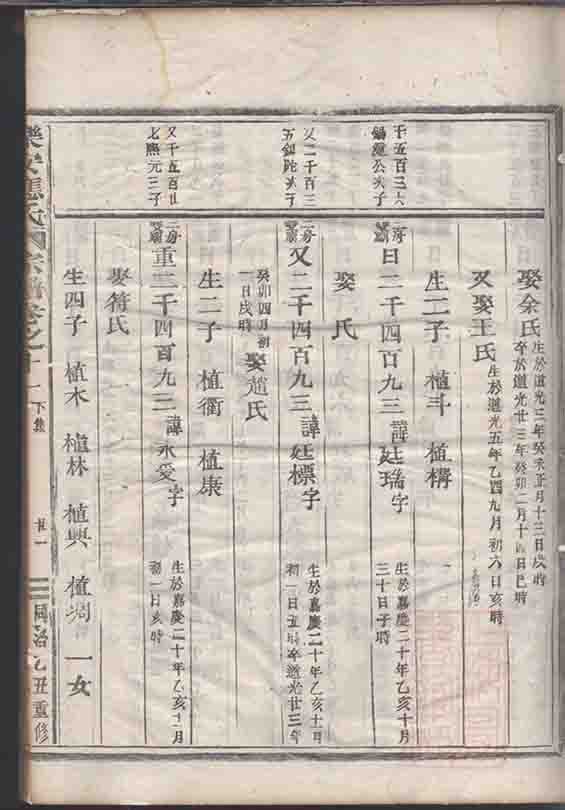 娶余氏 生於道光三年癸未正月十三日戌時
卒於道光廿三年癸卯二月十四日巳時
又娶王氏 生於道光五年乙酉九月初六日亥時
生二子 植斗 植構
千五百三六
錫 公次子
二房 日二千四百九三 諱廷瑞字 生於嘉慶二十年乙亥十月
三十日子時
娶 氏
又二千百三
五 陀次子
二房 又二千四百九三 諱廷標字 生於嘉慶二十年乙亥十一月
初一日丑時卒道光廿三年
癸卯四月初
一日戌時 娶趙氏
生二子 植衢 植康
又千五百廿
七熙元三子
二房 重二千四百九三 諱永愛字 生於嘉慶二十年乙亥十二月
初一日亥時
娶符氏
生四子 植木 植林 植興 植澗 一女
樂安 氏 宗譜卷之十一 下集 廿一 同治乙丑重修